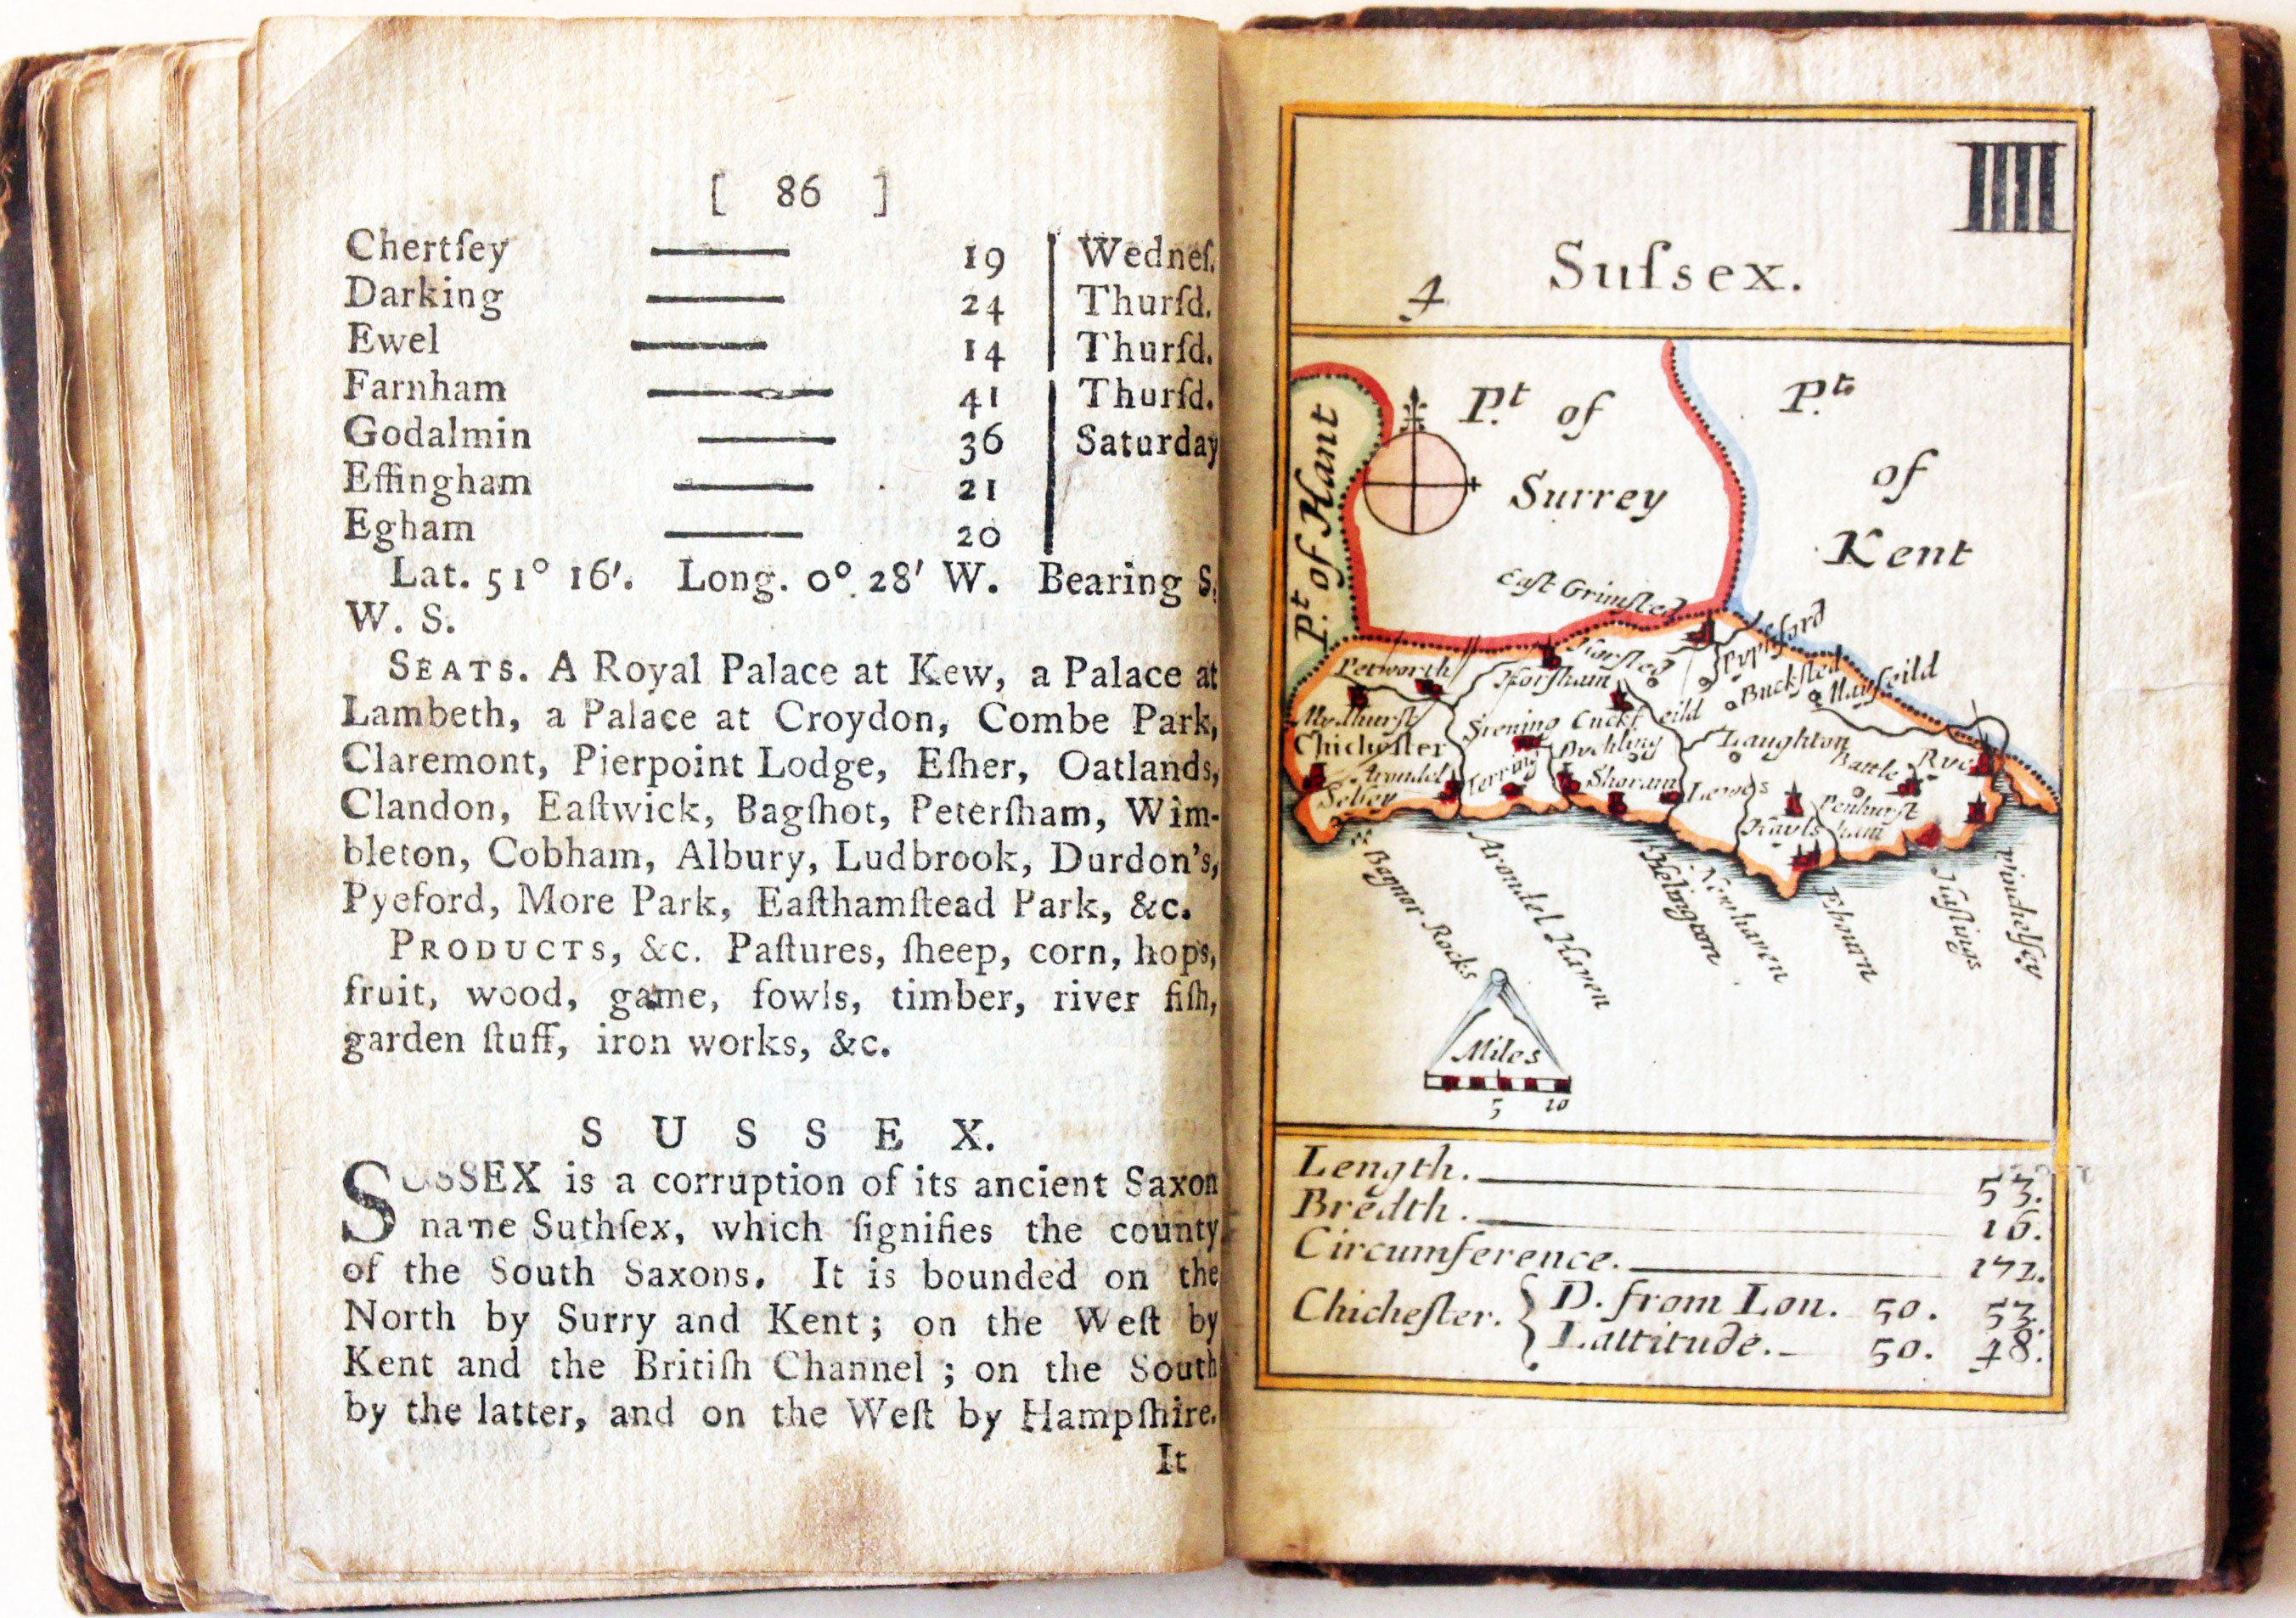 [ 86 ]
Chertſey —— 19 | Wedneſ.
Darking —— 24 | Thurſd.
Ewel —— 14 | Thurſd.
Farnham —— 41 | Thurſd.
Godalmin —— 36 | Saturday
Effingham —— 21
Egham —— 20
Lat. 51° 16′. Long. 0° 28′ W. Bearing S.
W. S.
SEATS. A Royal Palace at Kew, a Palace at
Lambeth, a Palace at Croydon, Combe Park,
Claremont, Pierpoint Lodge, Eſher, Oatlands,
Clandon, Eaſtwick, Bagſhot, Peterſham, Wim-
bleton, Cobham, Albury, Ludbrook, Durdon's,
Pyeford, More Park, Eaſthamſtead Park, &c.
PRODUCTS, &c. Paſtures, ſheep, corn, hops,
fruit, wood, game, fowls, timber, river fiſh,
garden ſtuff, iron works, &c.
SUSSEX.
SUSSEX is a corruption of its ancient Saxon
name Suthſex, which ſignifies the county
of the South Saxons. It is bounded on the
North by Surry and Kent; on the Weſt by
Kent and the Britiſh Channel; on the South
by the latter, and on the Weſt by Hampſhire.
It
IIII
4
Suſsex.
P.t of Surrey
P.t of Kent
P.t of Hant
Eaſt Grimſted
Petworth
Horſted
Horſham
Buckſted
Mayfeild
Midhurſt
Stening
Cuckfeild
Chicheſter
Laughton
Battle
Rye
Arondel
Terring
Shoram
Lewes
Selſey
Penhurſt
Haylsham
Bagnor Rocks
Arondel Haven
Newhaven
Ebourn
Haſtings
Winchelſey
Miles
5 10
Length. 53.
Bredth. 16.
Circumference. 172.
Chicheſter. { D. from Lon. 50. 53.
Lattitude. 50. 48.